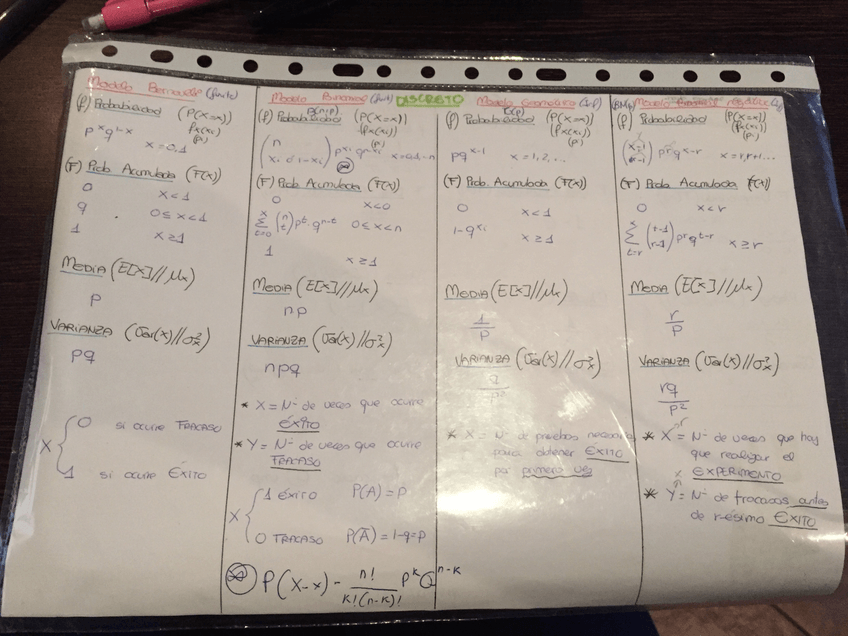 Modelo Bernoulli (finito)
(f) Probabilidad (P(X=x))
p^x q^1-x x=0,1
(F) Prob. Acumulada (F(x))
0 x<1
q 0≤x<1
1 x≥1
MEDIA (E[X]//μx)
p
VARIANZA (Var(x)//σ²x)
pq
X { 0 si ocurre FRACASO
1 si ocurre ÉXITO
Modelo Binomial (finito)
(f) Probabilidad (P(X=x))
(F) Prob. Acumulada (F(x))
0 x<0
∑ t=0 x (n t) p^t · q^n-t 0≤x<n
1 x≥1
MEDIA (E[X]//μx)
np
VARIANZA (Var(x)//σ²x)
npq
* X = Nº de veces que ocurre
ÉXITO
* Y = Nº de veces que ocurre
FRACASO
X { 1 ÉXITO P(A)=p
0 FRACASO P(Ā)=1-q=p
P(X-x) - n! / k!(n-k)! p^k Q^n-k
DISCRETO
Modelo Geométrico
(f) Probabilidad (P(X=x))
pq^x-1 x=1,2,...
(F) Prob. Acumulada (F(x))
0 x<1
1-q^xi x≥1
MEDIA (E[X]//μx)
1/p
VARIANZA (Var(x)//σ²x)
* X = Nº de pruebas necesarias
para obtener ÉXITO
por primera vez
Modelo Binomial negativo
(f) Probabilidad (P(X=x))
(x-1 r-1) p^r q^x-r x=r,r+1...
(F) Prob. Acumulada F(x)
0 x<r
∑ t=r x (t-1 r-1) p^r q^t-r x≥r
MEDIA (E[X]//μx)
r/p
VARIANZA (Var(x)//σ²x)
rq/p²
* X = Nº de veces que hay
que realizar el
EXPERIMENTO
* Y = Nº de fracasos antes
de r-ésimo ÉXITO